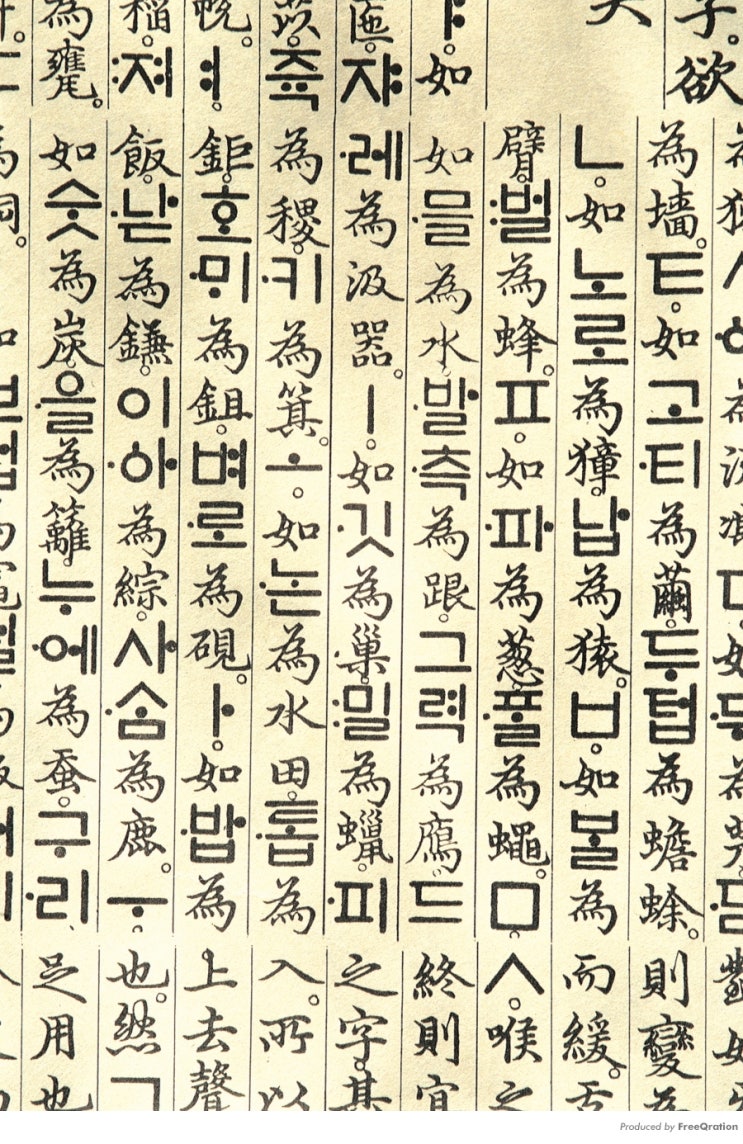 子。欲
ㅑ如
쟈
쥭
져
為甕。
為墻。ㅌ。如고티為繭。두텁為蟾蜍。
ㄴ。如노로為獐。납為猿。ㅂ。如ᄇᆞᆯ為
臂。벌為蜂。ㅍ。如파為葱。ᄑᆞᆯ為蠅。ㅁ。
如믈為水。발측為跟。그력為鴈。드
레為汲器。ㅣ。如깃為巢。밀為蠟。피
為稷。키為箕。ㅗ。如논為水田。톱為
鉅。호ᄆᆡ為鉏。벼로為硯。ㅏ。如밥為
飯。낟為鎌。이ᅌᅡ為綜。사ᄉᆞᆷ為鹿。ㅜ。
如숫為炭。울為籬。누에為蚕。구리
則變
而緩。舌
ㅅ。喉之
終則宜
之字。其
入。所以
上去聲
也。然ㄱ
足用也
Produced by FreeQration